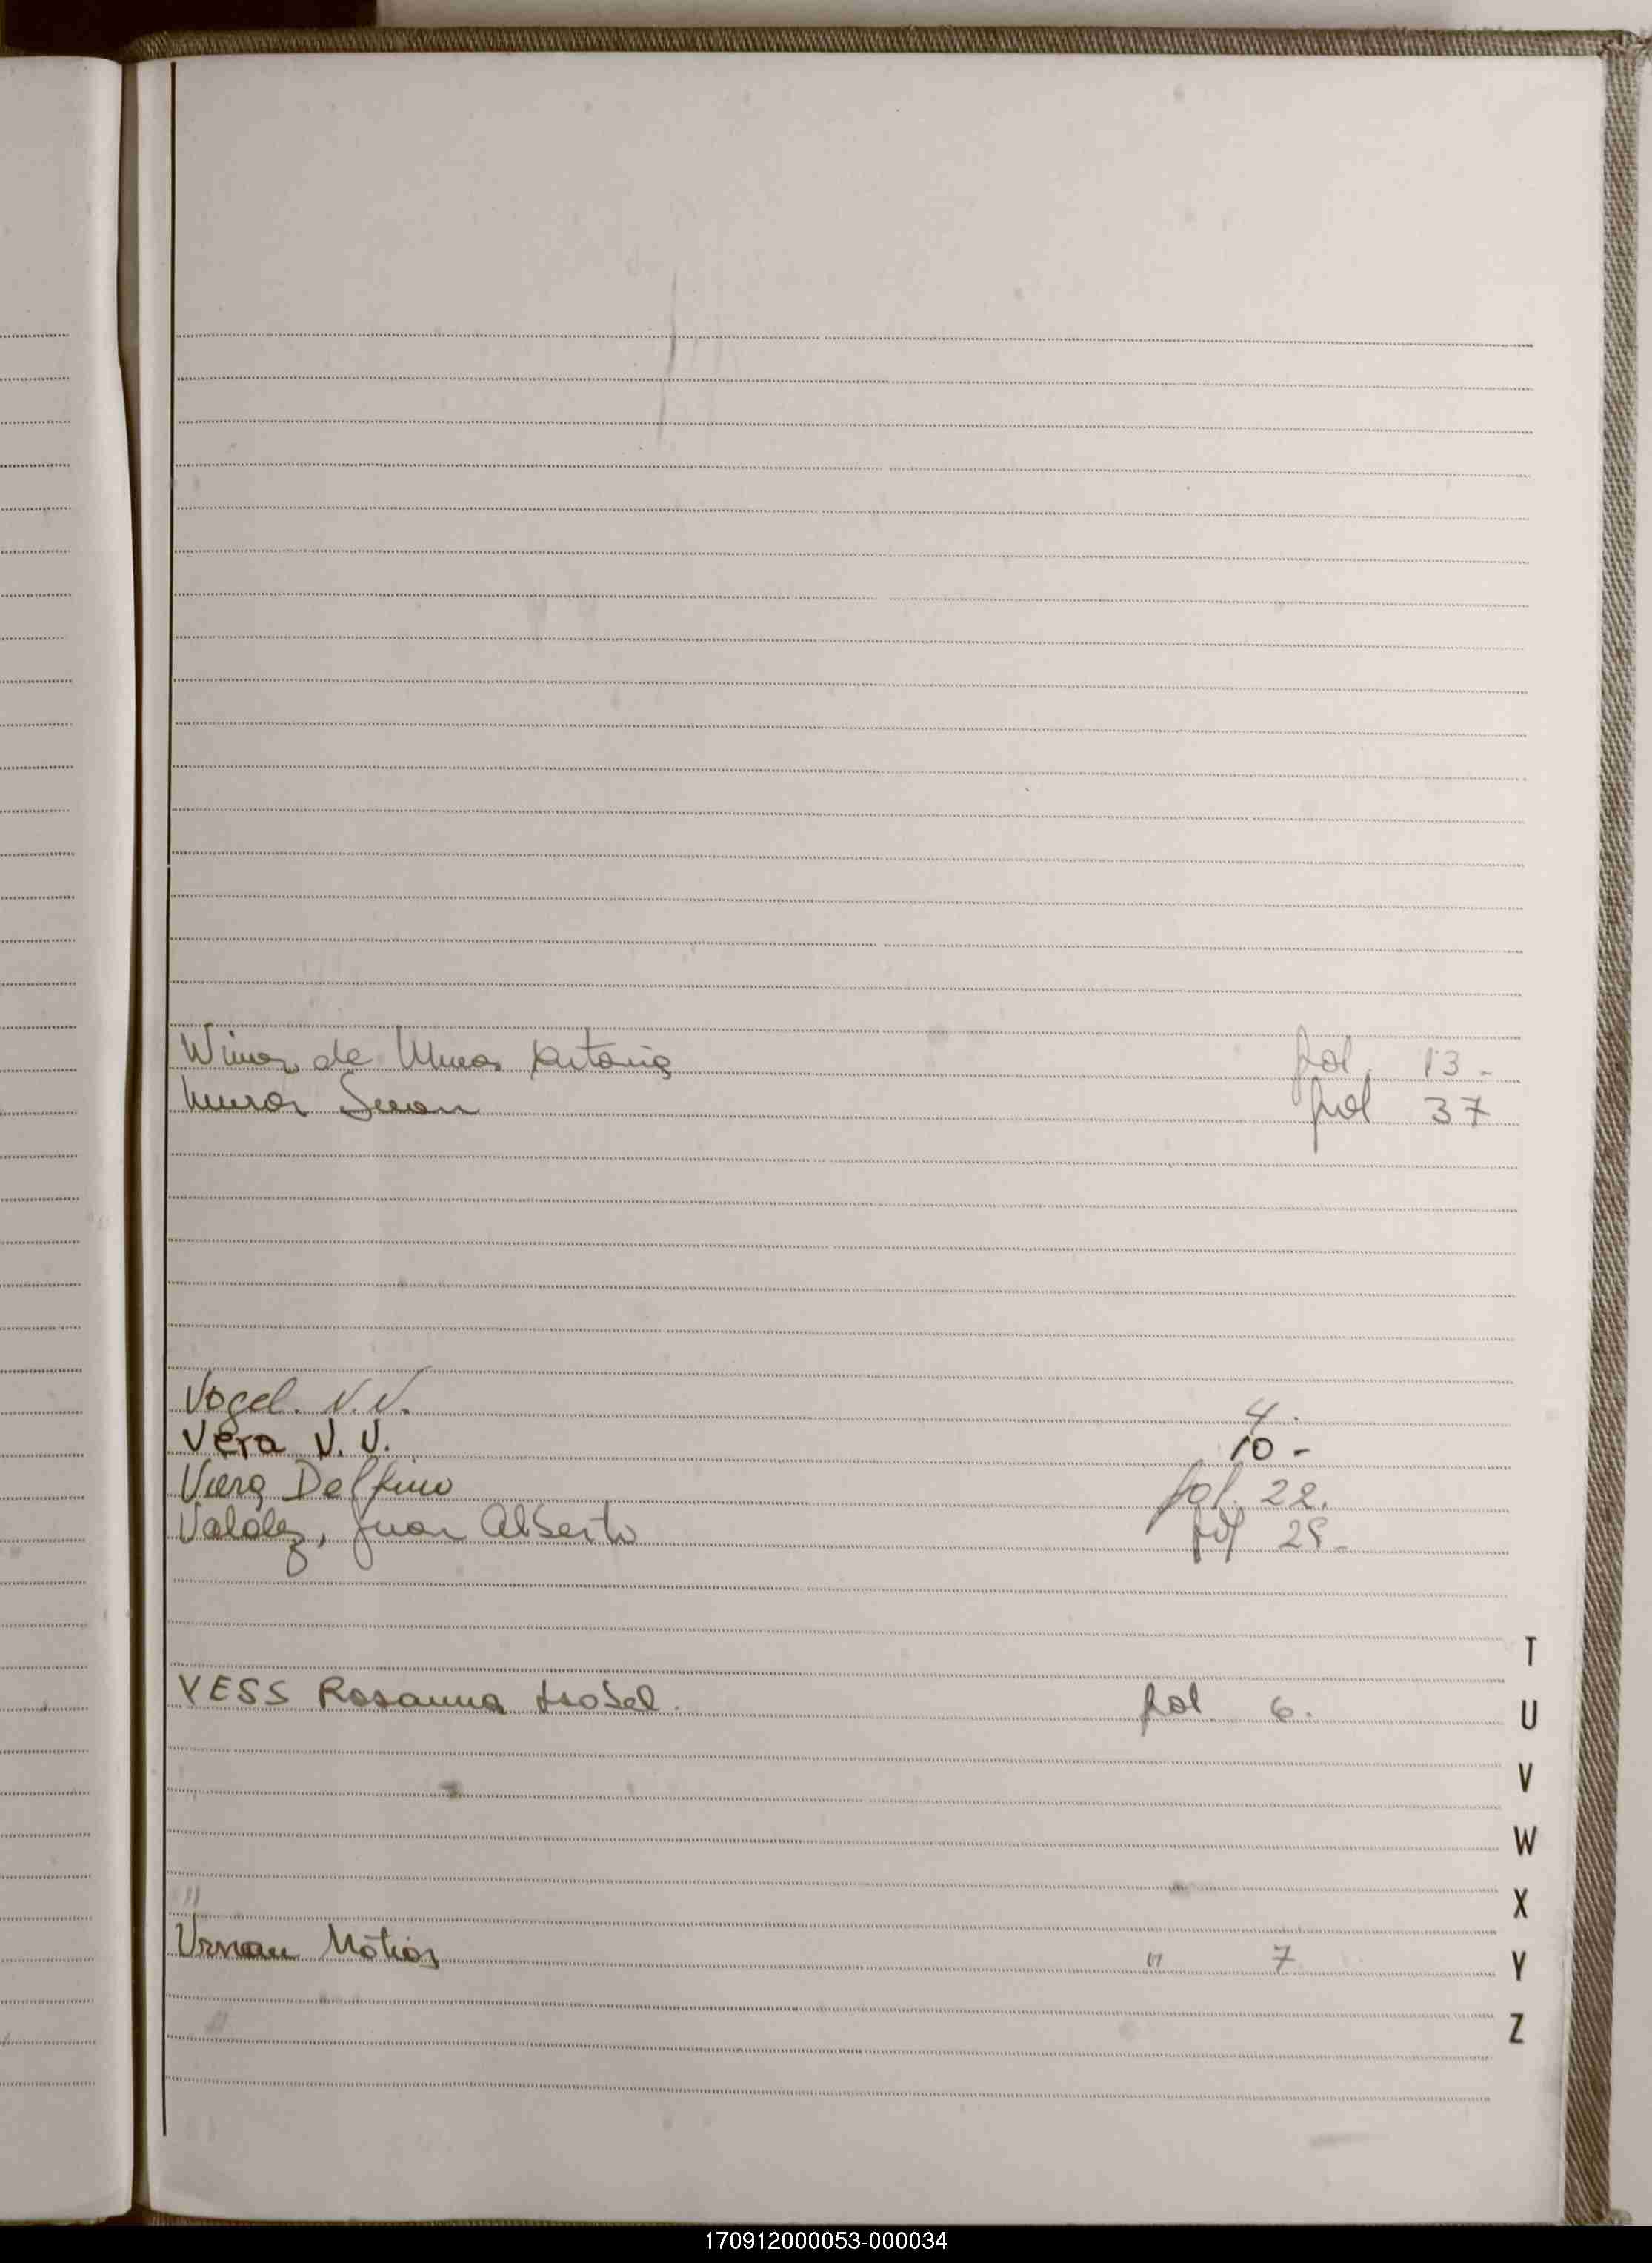 de Antonia fol. 13.-
Juan fol 37
Vogel. N.N. 4.
Vera N.N. 10-
Viera Delfino fol. 22.
Valdez, Juan Alberto fol 25-
YESS Rosanna Isabel. fol 6.
Matias " 7
T
U
V
W
X
Y
Z
170912000053-000034